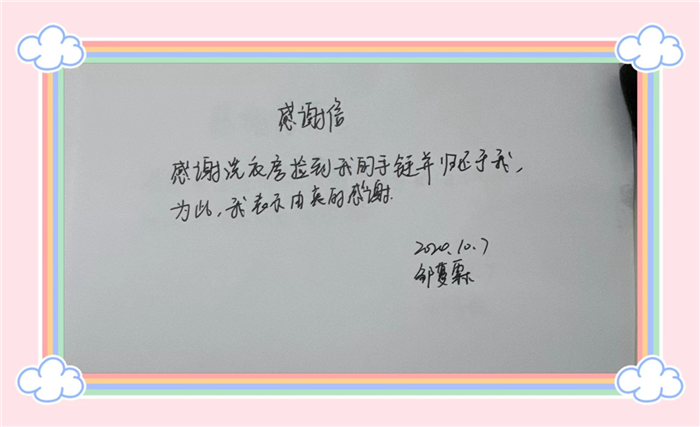 感谢信
感谢洗衣房捡到我的手链并归还于我,
为此,我表示由衷的感谢.
2020.10.7
邹夏